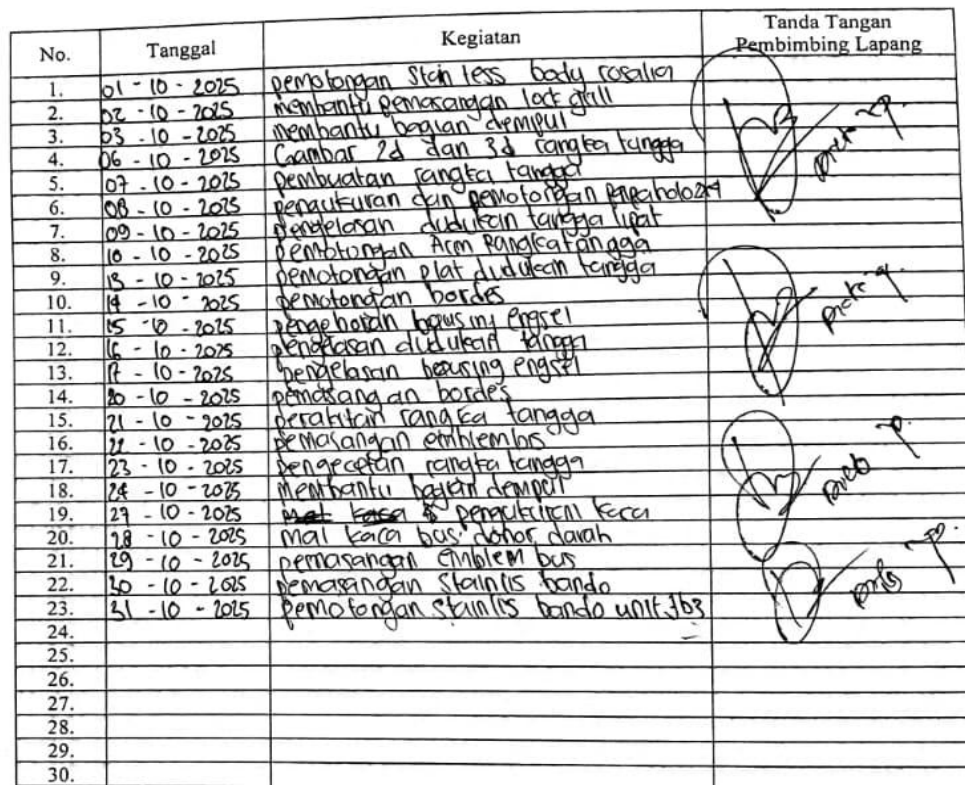 No. Tanggal Kegiatan Tanda Tangan Pembimbing Lapang
1. 01 - 10 - 2025 pemotongan Stainless body rosalia
2. 02 - 10 - 2025 membantu pemasangan lock grill
3. 03 - 10 - 2025 membantu bagian dempul
4. 06 - 10 - 2025 Gambar 2d dan 3d rangka tangga
5. 07 - 10 - 2025 pembuatan rangka tangga
6. 08 - 10 - 2025 pengukuran dan pemotongan
7. 09 - 10 - 2025 pengelasan dudukan tangga lipat
8. 10 - 10 - 2025 pemotongan Arm Rangka tangga
9. 13 - 10 - 2025 pemotongan plat dudukan tangga
10. 14 - 10 - 2025 pemotongan bordes
11. 15 - 10 - 2025 pengeboran engsel
12. 16 - 10 - 2025 pengelasan dudukan tangga
13. 17 - 10 - 2025 pengelasan engsel
14. 20 - 10 - 2025 pemasangan bordes
15. 21 - 10 - 2025 perakitan rangka tangga
16. 22 - 10 - 2025 pemasangan emblem bis
17. 23 - 10 - 2025 pengecetan rangka tangga
18. 24 - 10 - 2025 membantu bagian dempul
19. 27 - 10 - 2025 kaca
20. 28 - 10 - 2025 mal kaca bus donor darah
21. 29 - 10 - 2025 pemasangan emblem bus
22. 30 - 10 - 2025 pemasangan Stainlis bando
23. 31 - 10 - 2025 pemotongan stainlis bando unit
24.
25.
26.
27.
28.
29.
30.